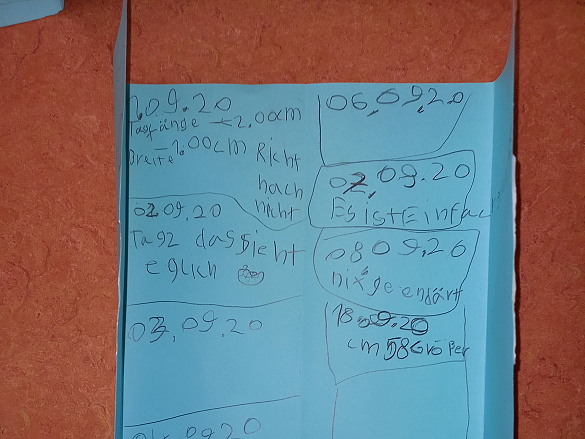 1.09.20
Tag länge 2.00cm
Breite 1.00cm Richt
nach
nicht
02.09.20
Tag2 dassieht
eglich
03.09.20
04.09.20
06.09.20
07.09.20
Es ist Einfach
08 09,20
nix geendärt
18.09.20
cm 58 Größer